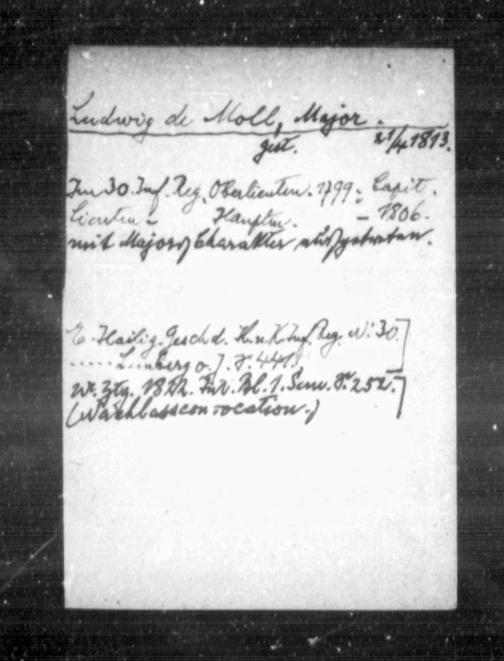 Ludwig de Moll, Major.
gest. 21/4 1813.
Im 30. Inf. Reg. Oberlieuten. 1799 - Capit.
Lieuten - Hauptm. - 1806.
mit Majors Charakter ausgetreten.
E. Hailig. Gesch. d. K. u. K. Inf. Reg. Nr. 30.
..... Lemberg S. 441.
W. Ztg. 1822. Int. Bl. 1. Sem. S. 252.
(Nachlassconvocation.)